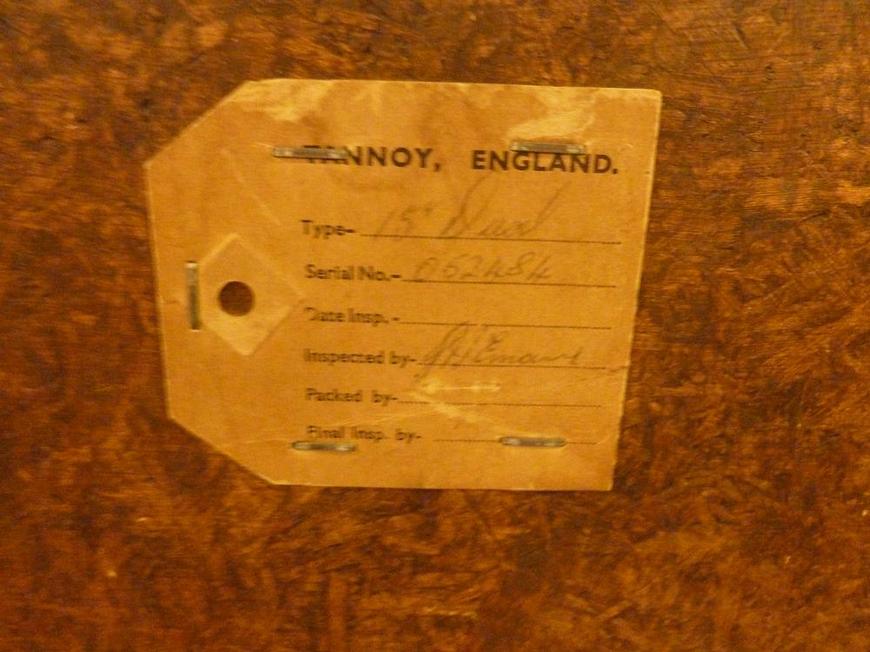 TANNOY, ENGLAND.
Type- 15" Dual
Serial No.- 052484
Date Insp. -
Inspected by-
Packed by-
Final Insp. by-